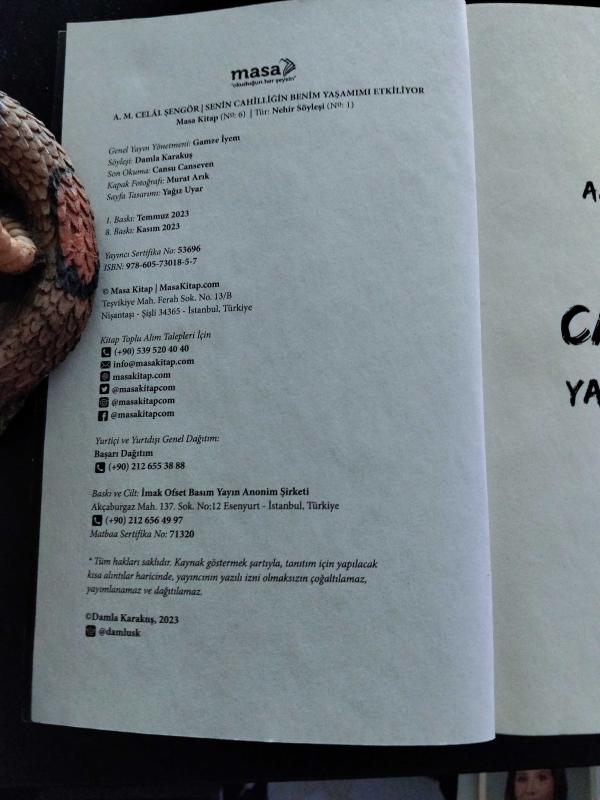 masa
"okuduğun her şeysin"
A. M. CELÂL ŞENGÖR | SENİN CAHİLLİĞİN BENİM YAŞAMIMI ETKİLİYOR
Masa Kitap (Nº: 6) | Tür: Nehir Söyleşi (Nº: 1)
Genel Yayın Yönetmeni: Gamze İyem
Söyleşi: Damla Karakuş
Son Okuma: Cansu Canseven
Kapak Fotoğrafı: Murat Arık
Sayfa Tasarımı: Yağız Uyar
1. Baskı: Temmuz 2023
8. Baskı: Kasım 2023
Yayıncı Sertifika No: 53696
ISBN: 978-605-73018-5-7
© Masa Kitap | MasaKitap.com
Teşvikiye Mah. Ferah Sok. No. 13/B
Nişantaşı - Şişli 34365 - İstanbul, Türkiye
Kitap Toplu Alım Talepleri İçin
(+90) 539 520 40 40
info@masakitap.com
masakitap.com
@masakitapcom
@masakitapcom
@masakitapcom
Yurtiçi ve Yurtdışı Genel Dağıtım:
Başarı Dağıtım
(+90) 212 655 38 88
Baskı ve Cilt: İmak Ofset Basım Yayın Anonim Şirketi
Akçaburgaz Mah. 137. Sok. No:12 Esenyurt - İstanbul, Türkiye
(+90) 212 656 49 97
Matbaa Sertifika No: 71320
* Tüm hakları saklıdır. Kaynak göstermek şartıyla, tanıtım için yapılacak
kısa alıntılar haricinde, yayıncının yazılı izni olmaksızın çoğaltılamaz,
yayımlanamaz ve dağıtılamaz.
©Damla Karakuş, 2023
@damlusk
A.
CA
YA